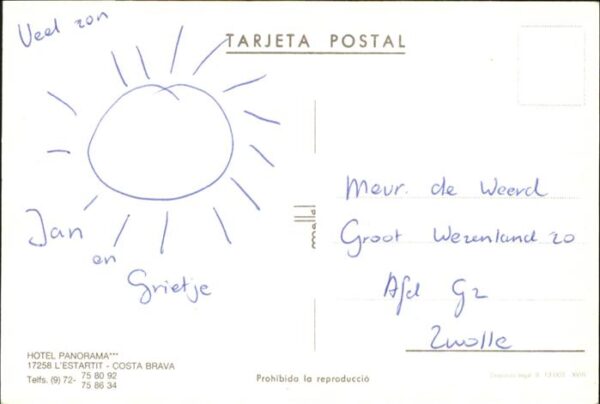 Veel zon
TARJETA POSTAL
Jan
en
Grietje
Mevr. de Weerd
Groot Wezenland 20
Afd G2
Zwolle
HOTEL PANORAMA***
17258 L'ESTARTIT - COSTA BRAVA
Telfs. (9) 72- 75 80 92
75 86 34
Prohibida la reproducció